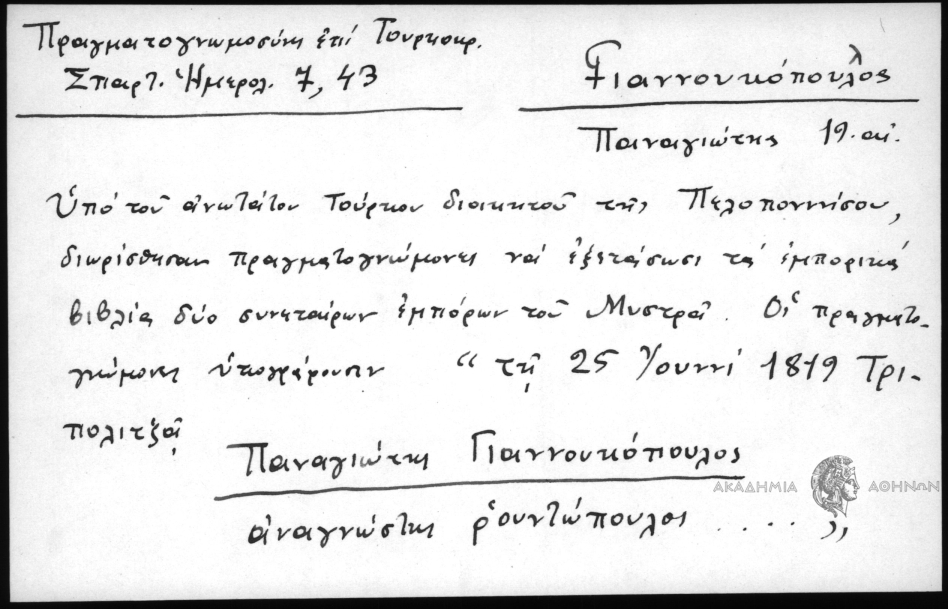 Πραγματογνωμοσύνη ἐπί Τουρκοκρ.
Σπαρτ. Ἡμερολ. 7, 43
Γιαννουκόπουλος
Παναγιώτης 19. αἰ.
Ὑπό τοῦ ἀνωτάτου Τούρκου διοικητοῦ τῆς Πελοποννήσου,
διωρίσθησαν πραγματογνώμονες νά ἐξετάσωσι τά ἐμπορικά
βιβλία δύο συνεταίρων ἐμπόρων τοῦ Μυστρᾶ. Οἱ πραγματο-
γνώμονες ὑπογράφουσιν "τῇ 25 Ἰουνί 1819 Τρι-
πολιτζᾷ
Παναγιώτης Γιαννουκόπουλος
ἀναγνώστης ῥουντώπουλος ....."
ΑΚΑΔΗΜΙΑ ΑΘΗΝΩΝ